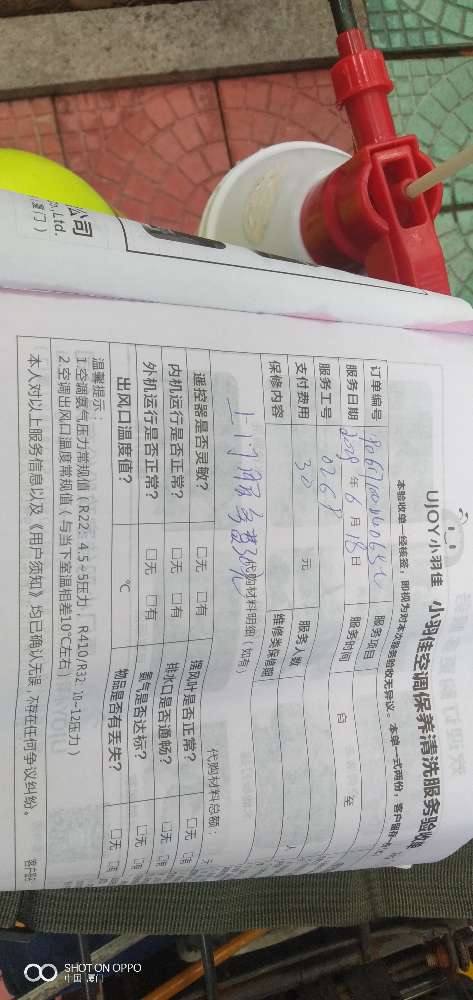 公司
Co.,Ltd.
厦门）
UJOY小羽佳 小羽佳空调保养清洗服务验收单
本验收单一经核签，即视为对本次服务验收无异议。本单一式两份，客户留存
订单编号 服务项目
服务日期 年 6 月 18 日 服务时间 自 至
服务工号 0268
支付费用 30 元 服务人数 人
保修内容 维修类保修期
上门服务费30元
代购材料明细（如有） 代购材料总额：
遥控器是否灵敏？ □无 □有 摆风叶是否正常？ □无
内机运行是否正常？ □无 □有 排水口是否通畅？ □无
外机运行是否正常？ □无 □有 氨气是否达标？ □无
出风口温度值？ ℃ 物品是否有丢失？ □无
温馨提示：
1.空调氨气压力常规值（R22：4.5~5压力，R410/R32：10~12压力）
2.空调出风口温度常规值（与当下室温相差10℃左右）
本人对以上服务信息以及《用户须知》均已确认无误，不存在任何争议纠纷。 客户签
SHOT ON OPPO
中国·厦门